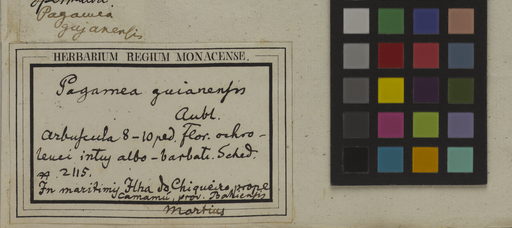 Pagamea
gujanensis
HERBARIUM REGIUM MONACENSE.
Pagamea guianensis
Aubl.
Arbuscula 8-10 ped. Flor. ochro-
leuci intus albo-barbati. Sched.
2115.
In maritimis Ilha do Chiqueiro, prope
Camamú, prov. Bahiensis
Martius